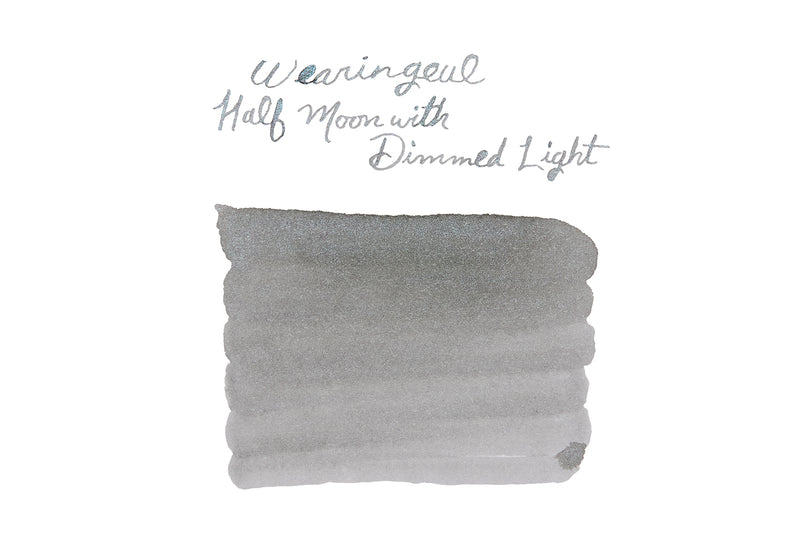 Wearingeul
Half Moon with
Dimmed Light